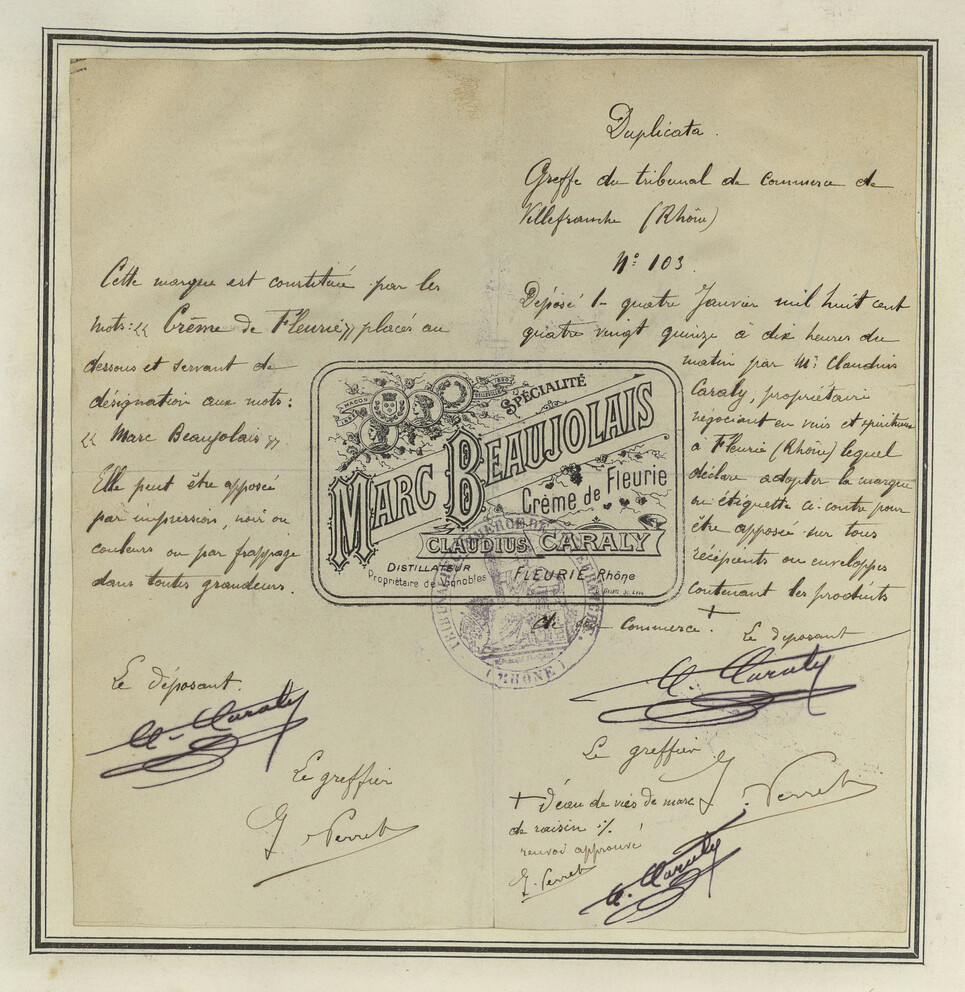 Cette marque est constituée par les
mots: « Crême de Fleurie » placés au
dessous et servant de
désignation aux mots:
« Marc Beaujolais »
Elle peut être apposée
par impression, noir ou
couleurs ou par frappage
dans toutes grandeurs.
Le déposant.
C. Caraly
Le greffier
J. Perret
Duplicata.
Greffe du tribunal de commerce de
Villefranche (Rhône)
N° 103.
Déposé le quatre Janvier mil huit cent
quatre vingt quinze à dix heures du
matin par Mr. Claudius
Caraly, propriétaire
négociant en vins et spiritueux
à Fleurie (Rhône) lequel
déclare adopter la marque
ou étiquette ci-contre pour
être apposée sur tous
récipients ou enveloppes
contenant les produits
de son commerce. +
Le déposant
C. Caraly
Le greffier
J. Perret
+ d'eau de vies de marc
de raisin ./.
renvoi approuvé
J. Perret
C. Caraly
MACON
BELLEVILLE
SPÉCIALITÉ
MARC BEAUJOLAIS
Crème de Fleurie
CLAUDIUS CARALY
DISTILLATEUR
Propriétaire de Vignobles
FLEURIE-Rhône
TRIBUNAL DE COMMERCE DE VILLEFRANCHE
RÉPUBLIQUE FRANÇAISE
(RHÔNE)